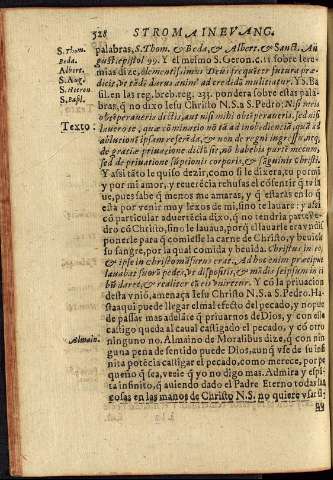 528 STROMA IN EVANG.
S. Thom.
Beda.
Albert.
S. Aug.
S. Hieron.
S. Basil.
Texto:
Almain.
palabras, S. Thom. & Beda, & Albert. & Sanct. Au
gust. epistol 99. Y el mesmo S. Geron. c. 11 sobre Iere-
mias dize, clementissimus Deus frequẽter futura præ-
dicit, ut tẽdẽ durus animꝰ ad credẽdũ mollitutur. Y S. Ba
sil. en las reg. breb. reg. 233. pondera sobre estas pala-
bras, q̃ no dixo Iesu Christo N. S. a S. Pedro; Nisi meis
obẽperaueris dictis, aut nisi mihi obẽperaueris, sed nisi
lauero te, quæ cõminatio nõ tã ad inobediẽciã, quã ad
ablucionẽ ipsam referẽda, & non de regni ingressu, neq;
de gratiæ priuatione dictũ sit, nõ habebis partẽ mecum,
sed de priuatione sũpcionis corporis, & sãguinis Christi.
Y assi tãto le quiso dezir, como si le dixera, tu pormi
y por mi amor, y reuerẽcia rehusas el cõsentir q̃ te la
ue, pues sabe q̃ menos me amaras, y q̃ estaras en lo q̃
esta por venir muy lexos de mi, sino te lauare: y assi
cõ particular aduertẽcia dixo, q̃ no tendria parte Pe-
dro cõ Christo, sino le lauaua, porq̃ el lauarle era pñdi
ponerle para q̃ comiesse la carne de Christo, y beuiesse
su sangre, por la qual comida y beuida. Christus in eo,
& ipse in Christo mãsurus erat. Ad hoc enim præcipue
lauabat suorũ pedes, vt dispositis, & mũdis seipsum in ci
bũ daret, & realiter cũ eis vniretur. Y cõ la priuacion
desta vniõ, amenaça Iesu Christo N. S. a S. Pedro. Ha-
sta aqui puede llegar el mal efecto del pecado, y no pue
de passar mas adelãte q̃ priuarnos de Dios, y con este
castigo queda al caual castigado el pecado, y cõ otro
ninguno no. Almaino de Moralibus dize, q̃ con nin
guna pena de sentido puede Dios, aunq̃ vse de su infi
nita potẽcia castigar el pecado, como merece, por pe
queño q̃ sea, veele q̃ yo no digo mas. Admira y espi-
ta infinito, q̃ auiendo dado el Padre Eterno todas las
cosas en las manos de Christo N. S. no quiere vsar di-